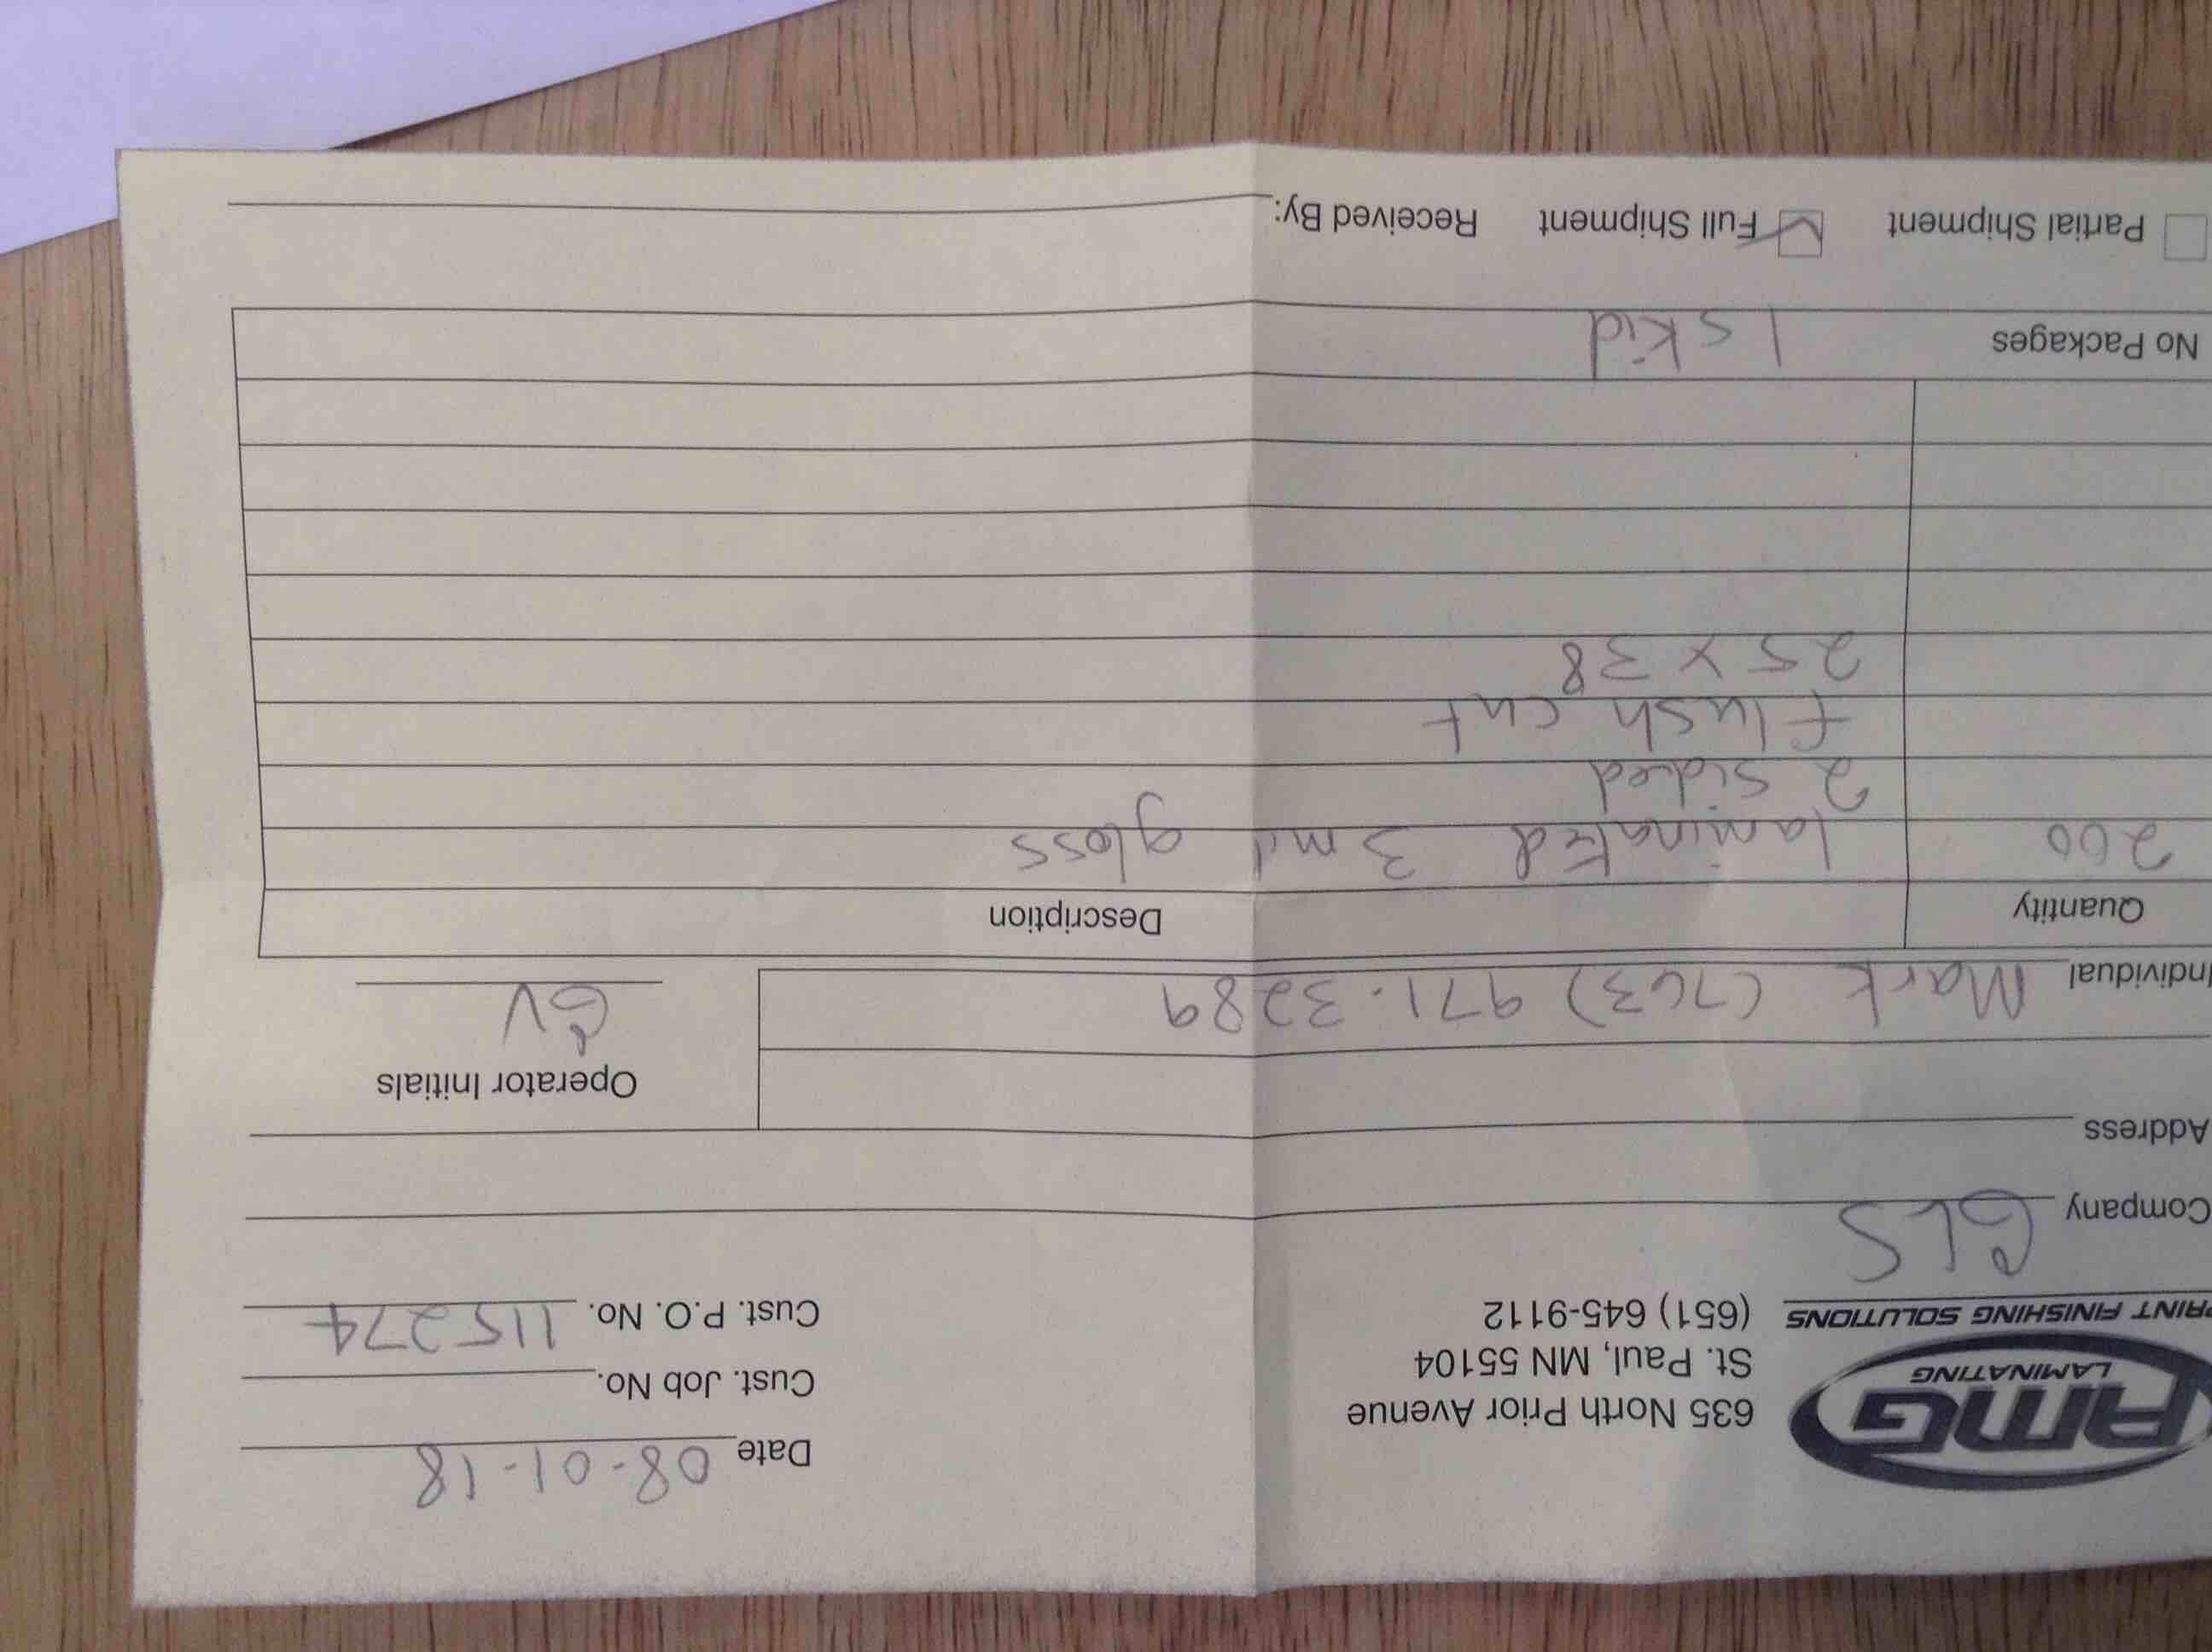 AMG
LAMINATING
PRINT FINISHING SOLUTIONS
635 North Prior Avenue
St. Paul, MN 55104
(651) 645-9112
Date 08-01-18
Cust. Job No.
Cust. P.O. No. 115274
Company GLS
Address
Operator Initials
GV
Individual Mark (763) 971-3289
Quantity Description
200 laminated 3 mil gloss
2 sided
flush cut
25 x 38
No Packages 1 skid
Partial Shipment Full Shipment Received By: